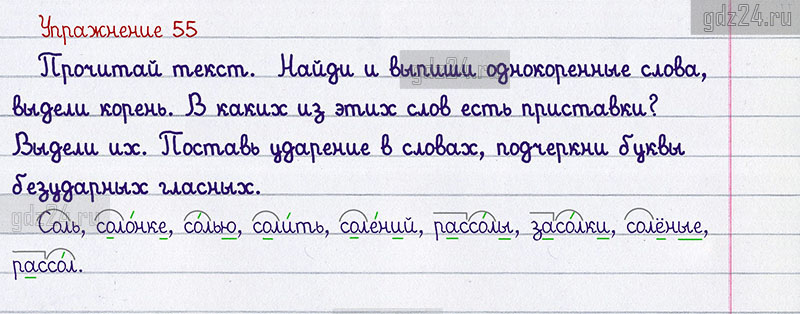 gdz24.ru
Упражнение 55
Прочитай текст. Найди и выпиши однокоренные слова,
gdz24.ru
выдели корень. В каких из этих слов есть приставки?
Выдели их. Поставь ударение в словах, подчеркни буквы
безударных гласных.
gdz24.ru
Соль, соло́нке, со́лью, соли́ть, соле́ний, рассо́лы, засо́лки, солёные,
рассо́л.